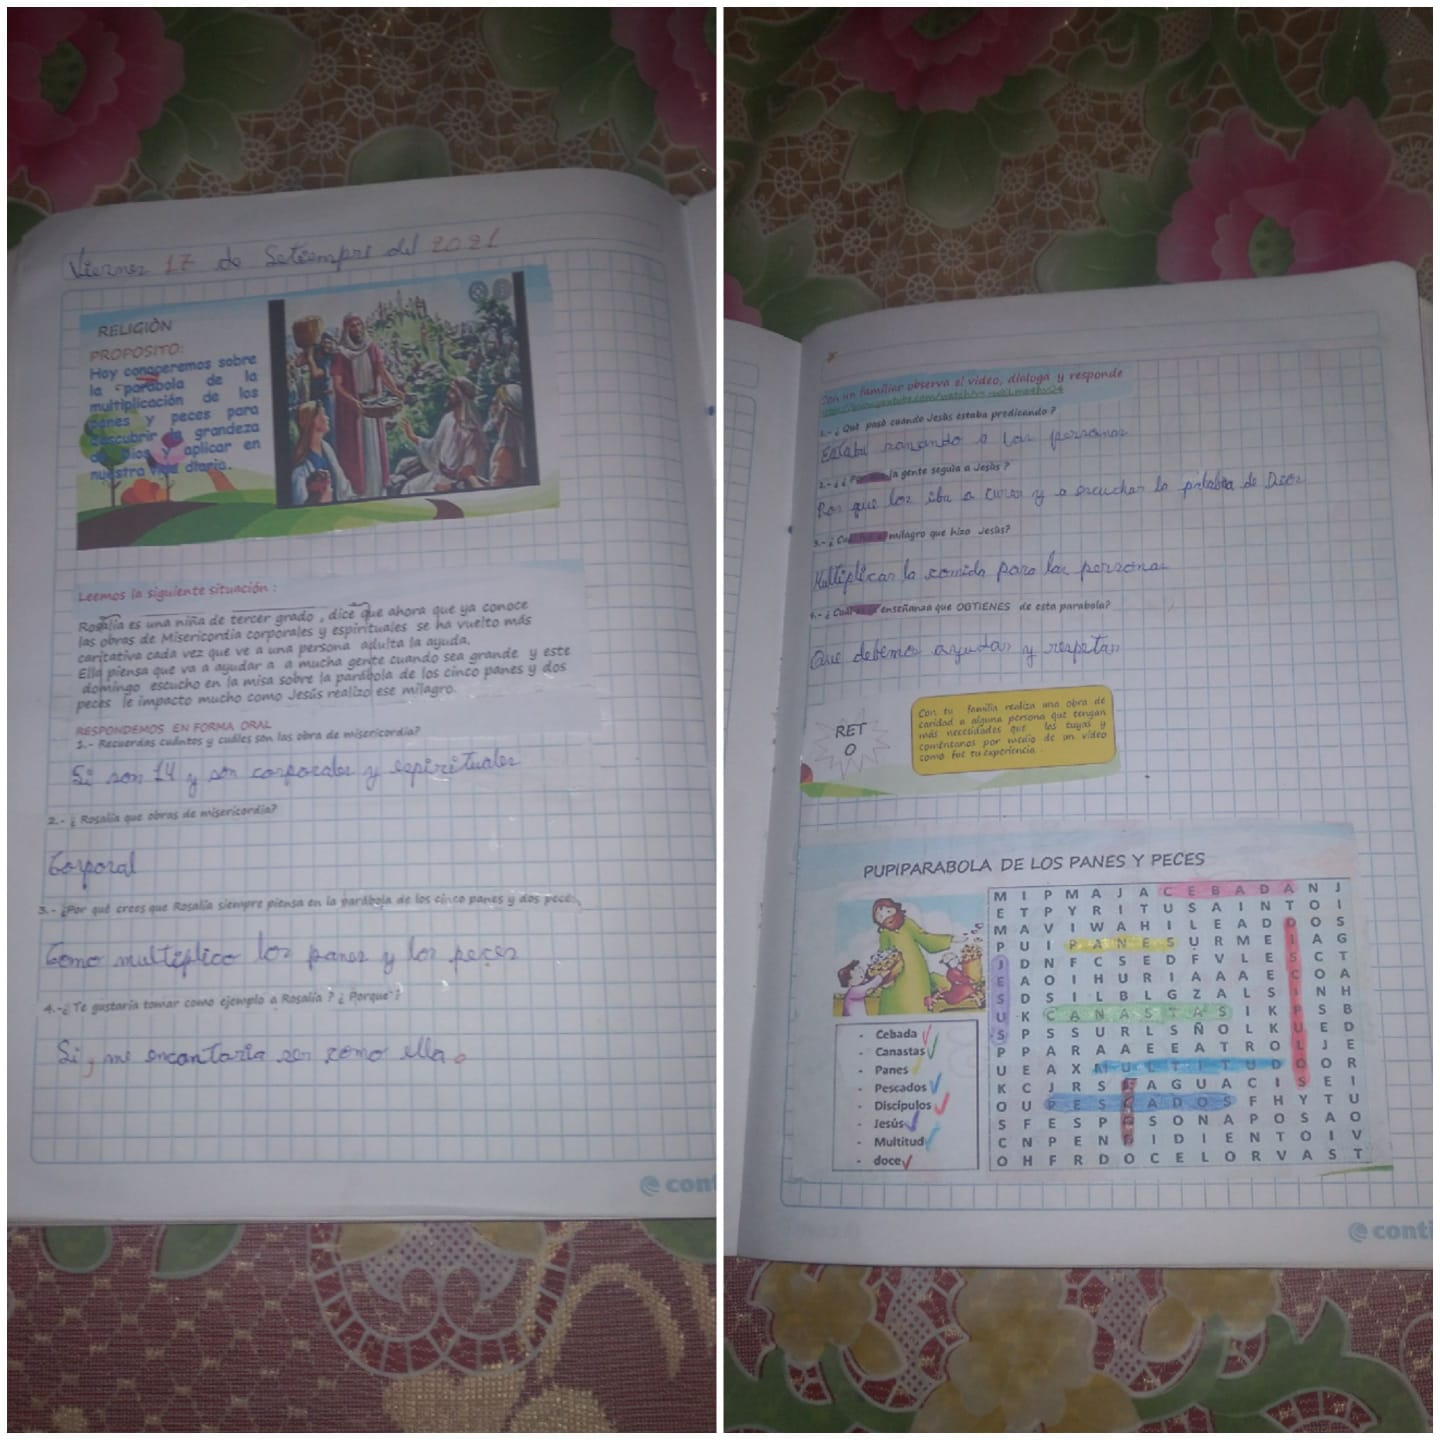 Viernes 17 de Setiempre del 2021
RELIGIÒN
PROPOSITO:
Hoy conoceremos sobre
la parábola de la
multiplicación de los
panes y peces para
descubrir la grandeza
de Dios y aplicar en
nuestra vida diaria.
Leemos la siguiente situación :
Rosalía es una niña de tercer grado , dice que ahora que ya conoce
las obras de Misericordia corporales y espirituales se ha vuelto más
caritativa cada vez que ve a una persona adulta la ayuda.
Ella piensa que va a ayudar a a mucha gente cuando sea grande y este
domingo escucho en la misa sobre la parábola de los cinco panes y dos
peces le impacto mucho como Jesús realizo ese milagro.
RESPONDEMOS EN FORMA ORAL
1.- Recuerdas cuántos y cuáles son las obra de misericordia?
Si son 14 y son corporales y espirituales
2.- ¿ Rosalía que obras de misericordia?
Corporal
3.- ¿Por qué crees que Rosalía siempre piensa en la parábola de los cinco panes y dos peces
Como multiplico los panes y los peces
4.-¿ Te gustaría tomar como ejemplo a Rosalía ? ¿ Porque ?
Si, me encantaria ser como ella.
conti
Con un familiar observa el video, dialoga y responde
1.- ¿ Qué pasó cuando Jesús estaba predicando ?
Estaba sanando a las personas
2.- ¿ la gente seguía a Jesús ?
Por que los iba a curar y a escuchar la palabra de Dios
3.- ¿ milagro que hizo Jesús?
Multiplicar la comida para las personas
4.- ¿ enseñanza que OBTIENES de esta parabola?
Que debemos ayudar y respetar
RET
O
Con tu familia realiza una obra de
caridad a alguna persona que tengan
más necesidades que las tuyas y
coméntanos por medio de un vídeo
como fue tu experiencia .
PUPIPARABOLA DE LOS PANES Y PECES
M I P M A J A C E B A D A N J
E T P Y R I T U S A I N T O I
M A V I W A H I L E A D D O S
P U I P A N E S U R M E I A G
J D N F C S E D F V L E S C T
E A O I H U R I A A A E C O A
S D S I L B L G Z A L S I N H
U K C A N A S T A S I K P S B
S P S S U R L S Ñ O L K U E D
P P A R A A E E A T R O L J E
U E A X M U L T I T U D O O R
K C J R S D A G U A C I S E I
O U P E S C A D O S F H Y T U
S F E S P S O N A P O S A O
C N P E N I D I E N T O I V
O H F R D O C E L O R V A S T
- Cebada
- Canastas
- Panes
- Pescados
- Discípulos
- Jesús
- Multitud
- doce
conti